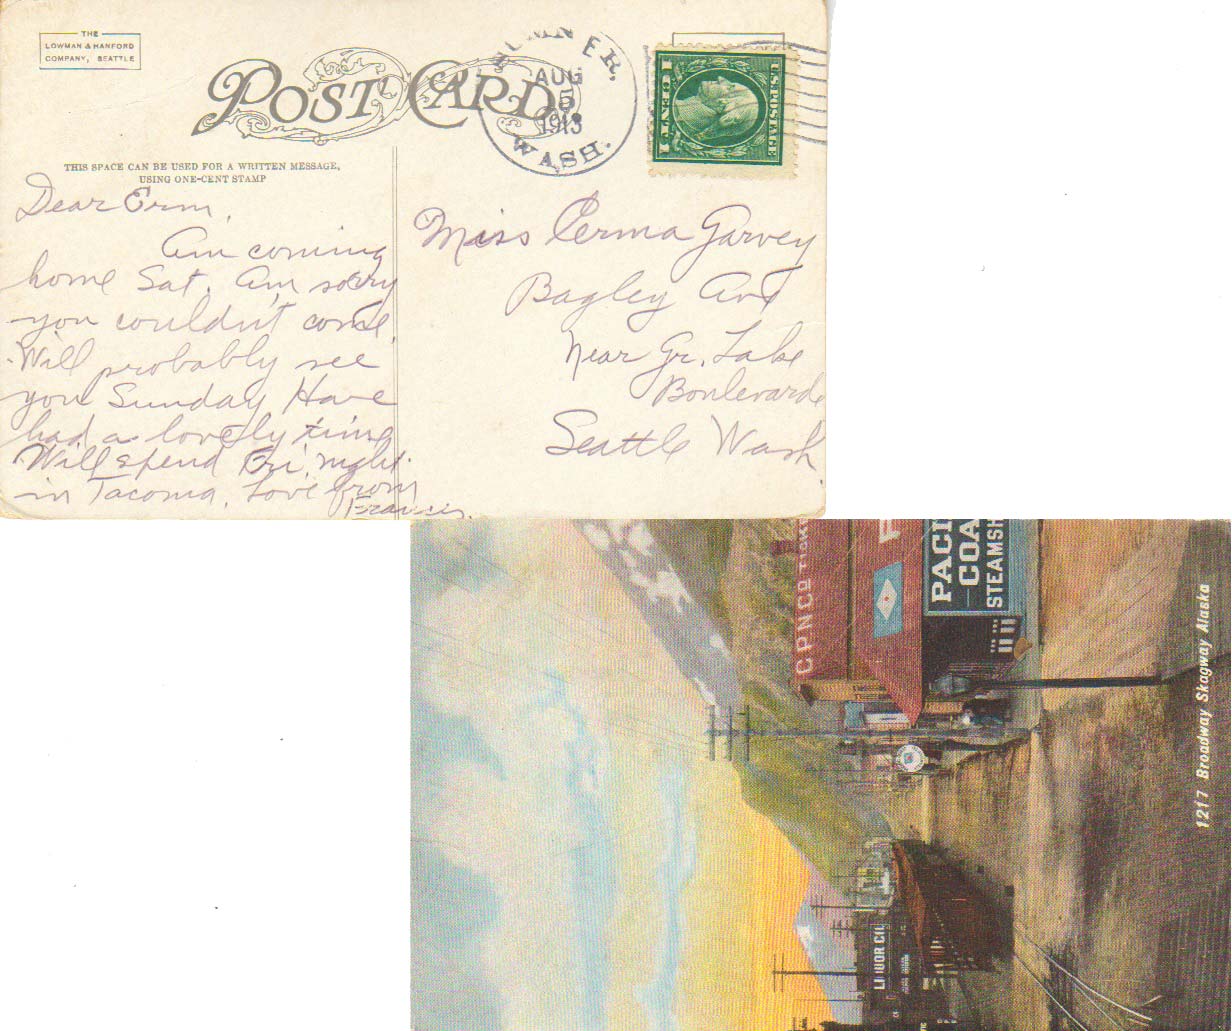 THE
LOWMAN & HANFORD
COMPANY, SEATTLE
POST CARD
SUMNER,
AUG
5
1913
WASH.
U.S. POSTAGE
1 CENT 1
THIS SPACE CAN BE USED FOR A WRITTEN MESSAGE,
USING ONE-CENT STAMP
Dear Erm,
Am coming
home Sat. Am sorry
you couldn't come
Will probably see
you Sunday Have
had a lovely time
Will spend Fri. night
in Tacoma. Love from
Francis.
Miss Erma Garvey
Bagley Ave
Near Gr. Lake
Boulevarde
Seattle Wash.
C.P.N.CO. TICKE
PACI
COA
STEAMSH
LIQUOR CIG
1217 Broadway Skagway Alaska